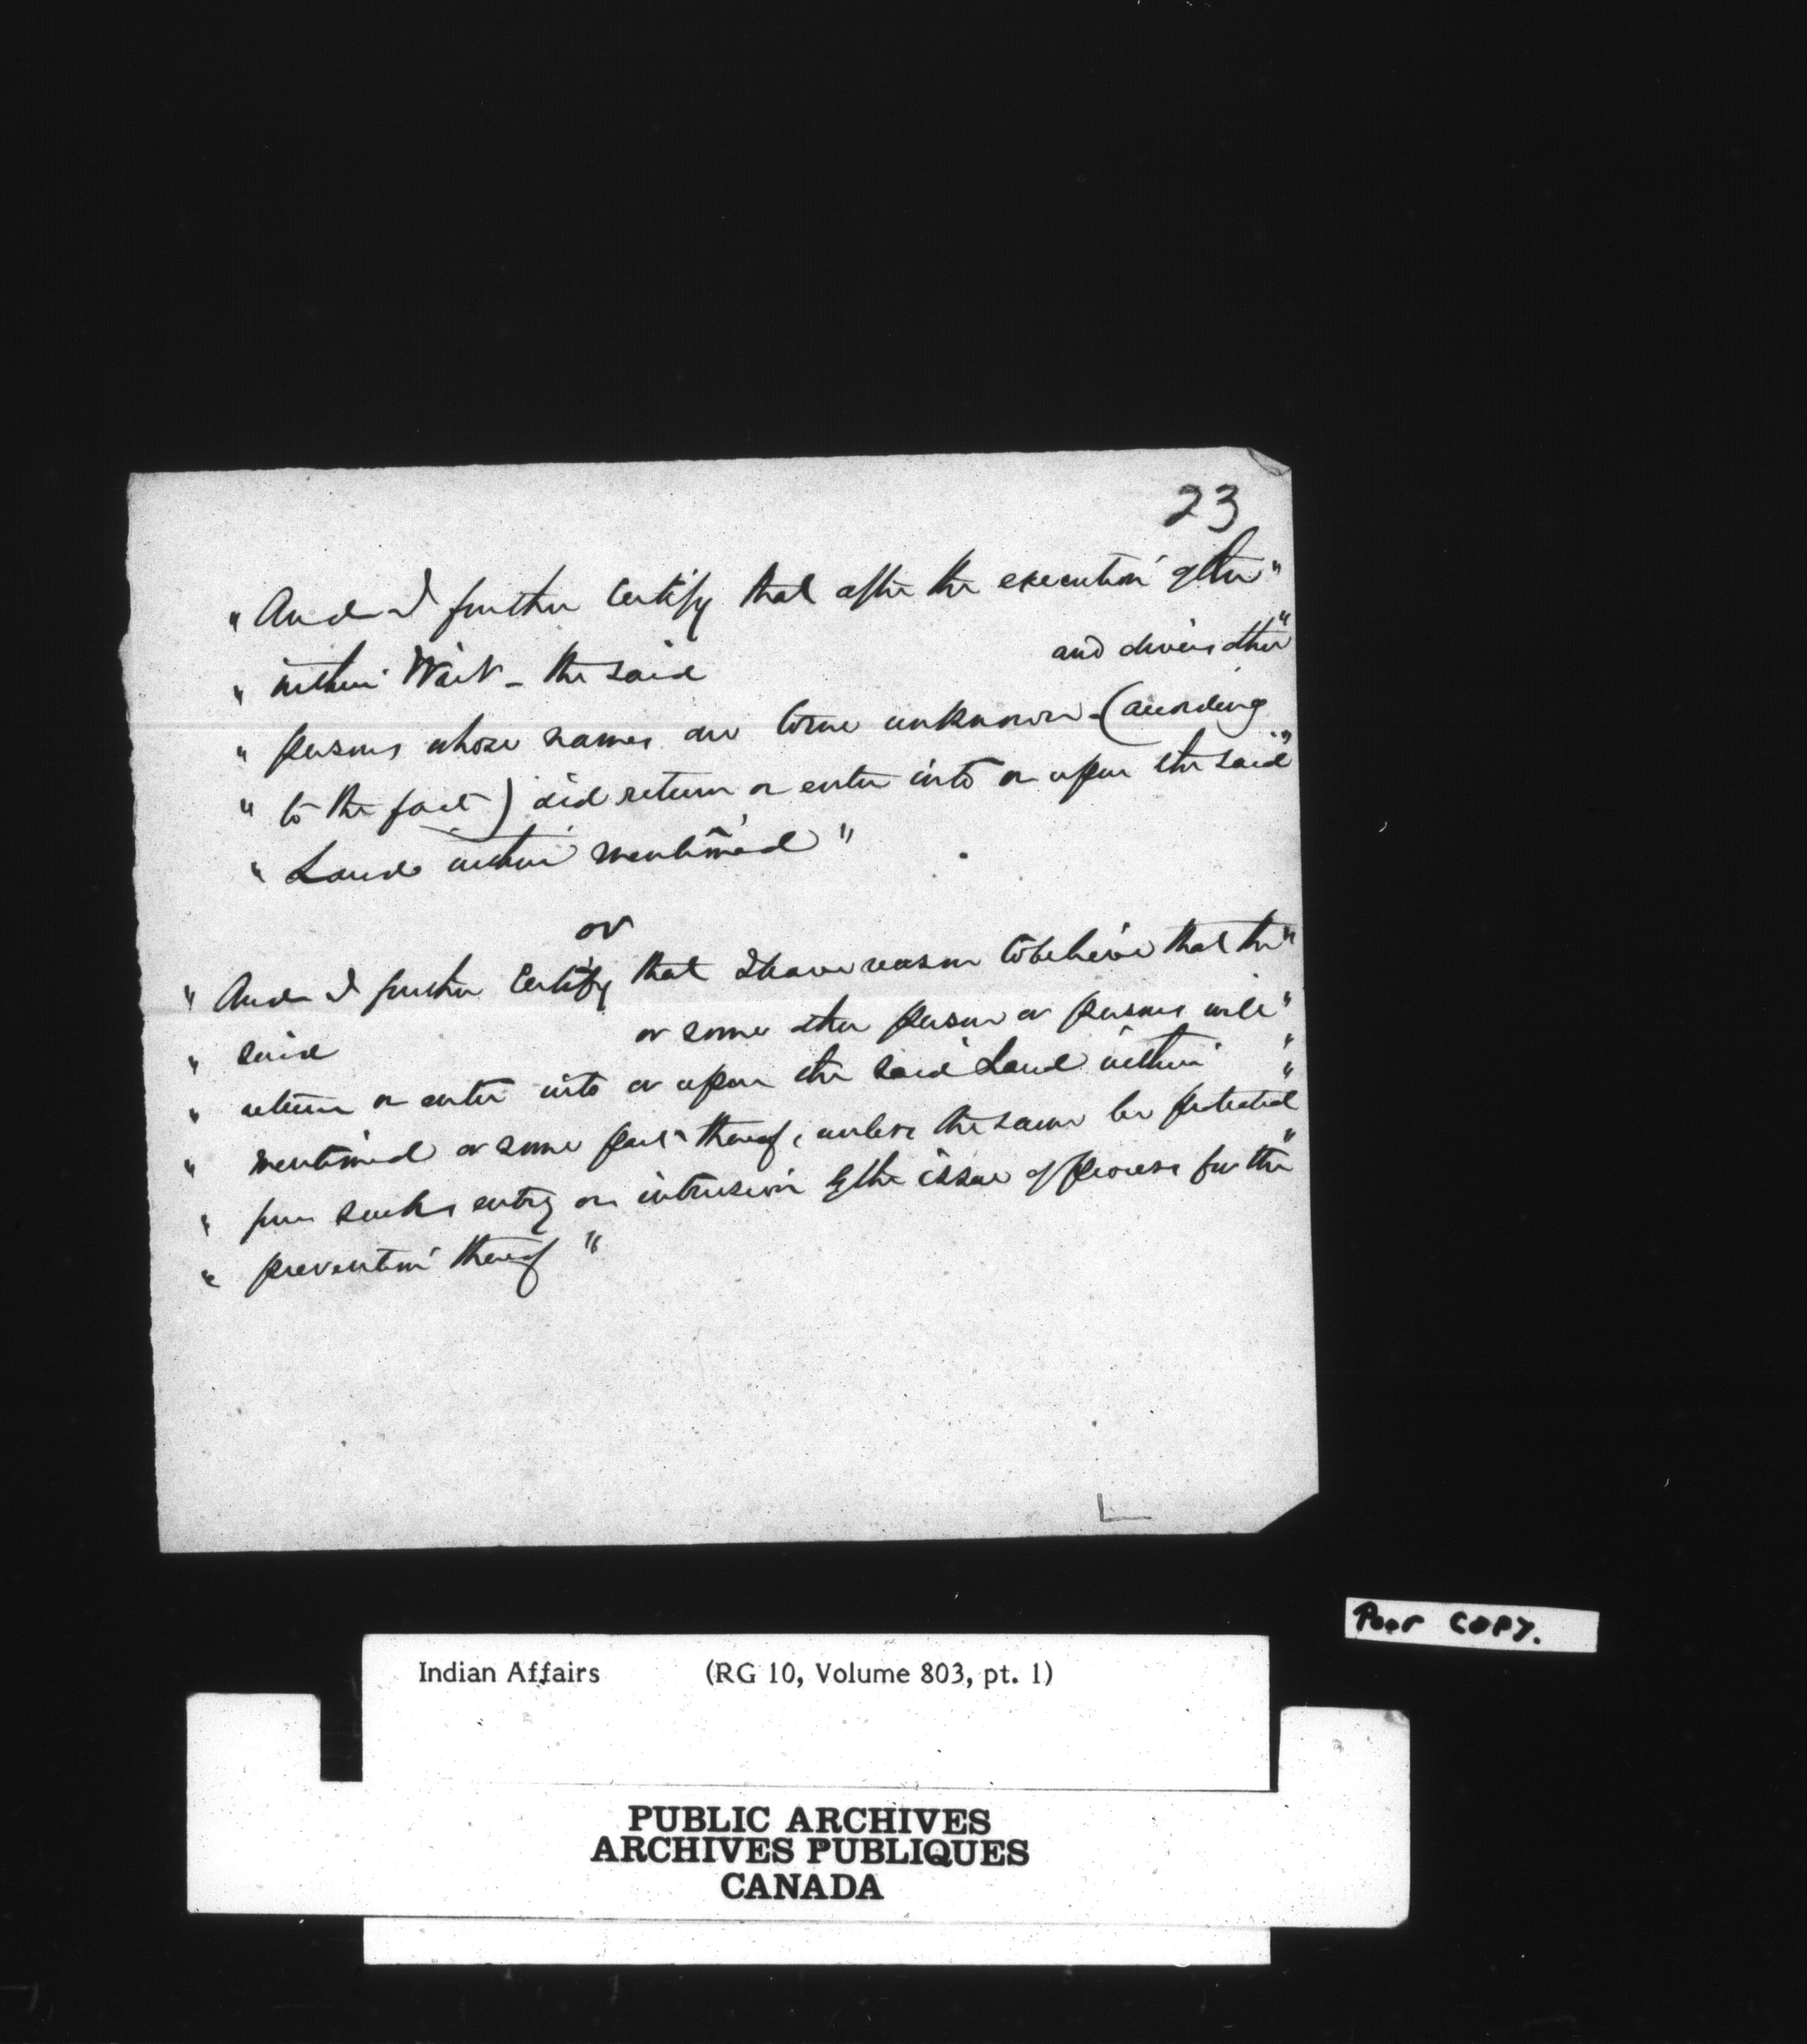 23
" And I further Certify that after the execution of the "
" within Writ - the said and divers other "
" persons whose names are to me unknown - (according
" to the fact) did return or enter into or upon the said "
" Land within mentioned "
or
" And I further Certify that I have reason to believe that the "
" said or some other person or persons will "
" return or enter into or upon the said Land within "
" mentioned or some part thereof, unless the same be protected "
" from such entry or intrusion by the issue of process for the "
" prevention thereof "
Poor COPY.
Indian Affairs (RG 10, Volume 803, pt. 1)
PUBLIC ARCHIVES
ARCHIVES PUBLIQUES
CANADA